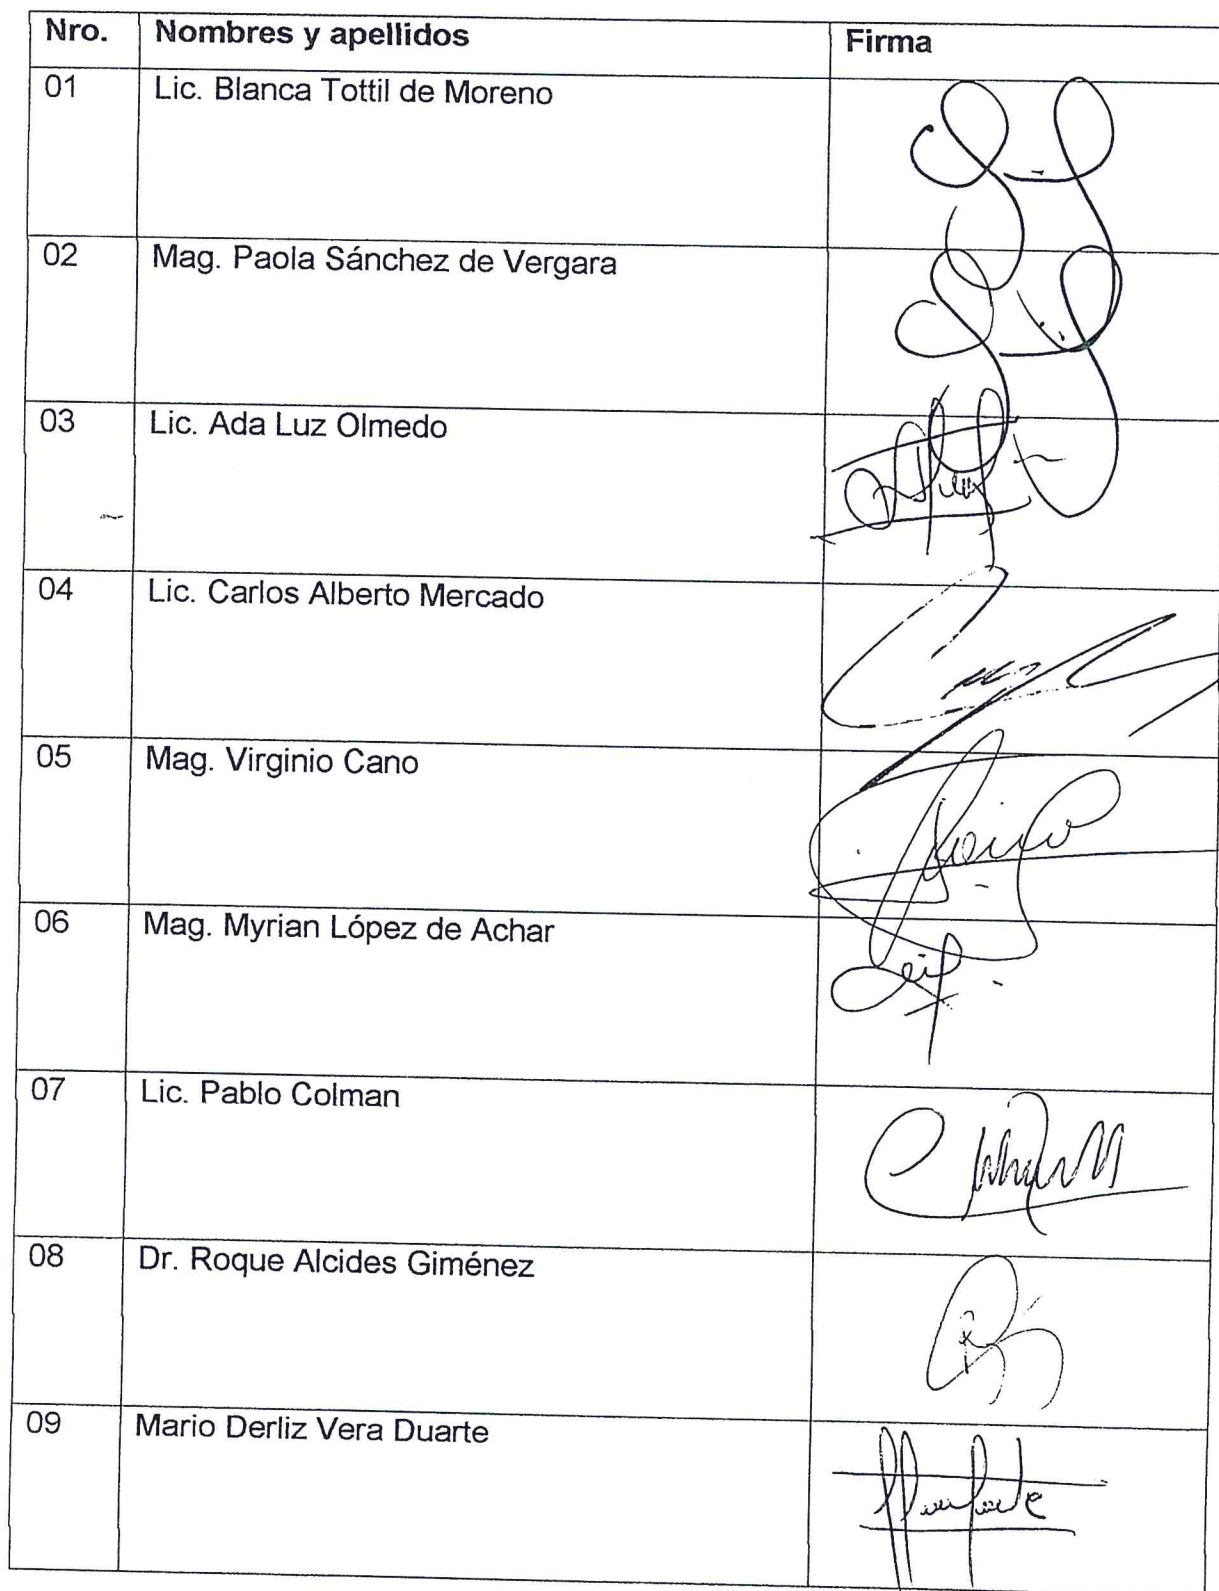 Nro. Nombres y apellidos Firma
01 Lic. Blanca Tottil de Moreno
02 Mag. Paola Sánchez de Vergara
03 Lic. Ada Luz Olmedo
04 Lic. Carlos Alberto Mercado
05 Mag. Virginio Cano
06 Mag. Myrian López de Achar
07 Lic. Pablo Colman
08 Dr. Roque Alcides Giménez
09 Mario Derliz Vera Duarte